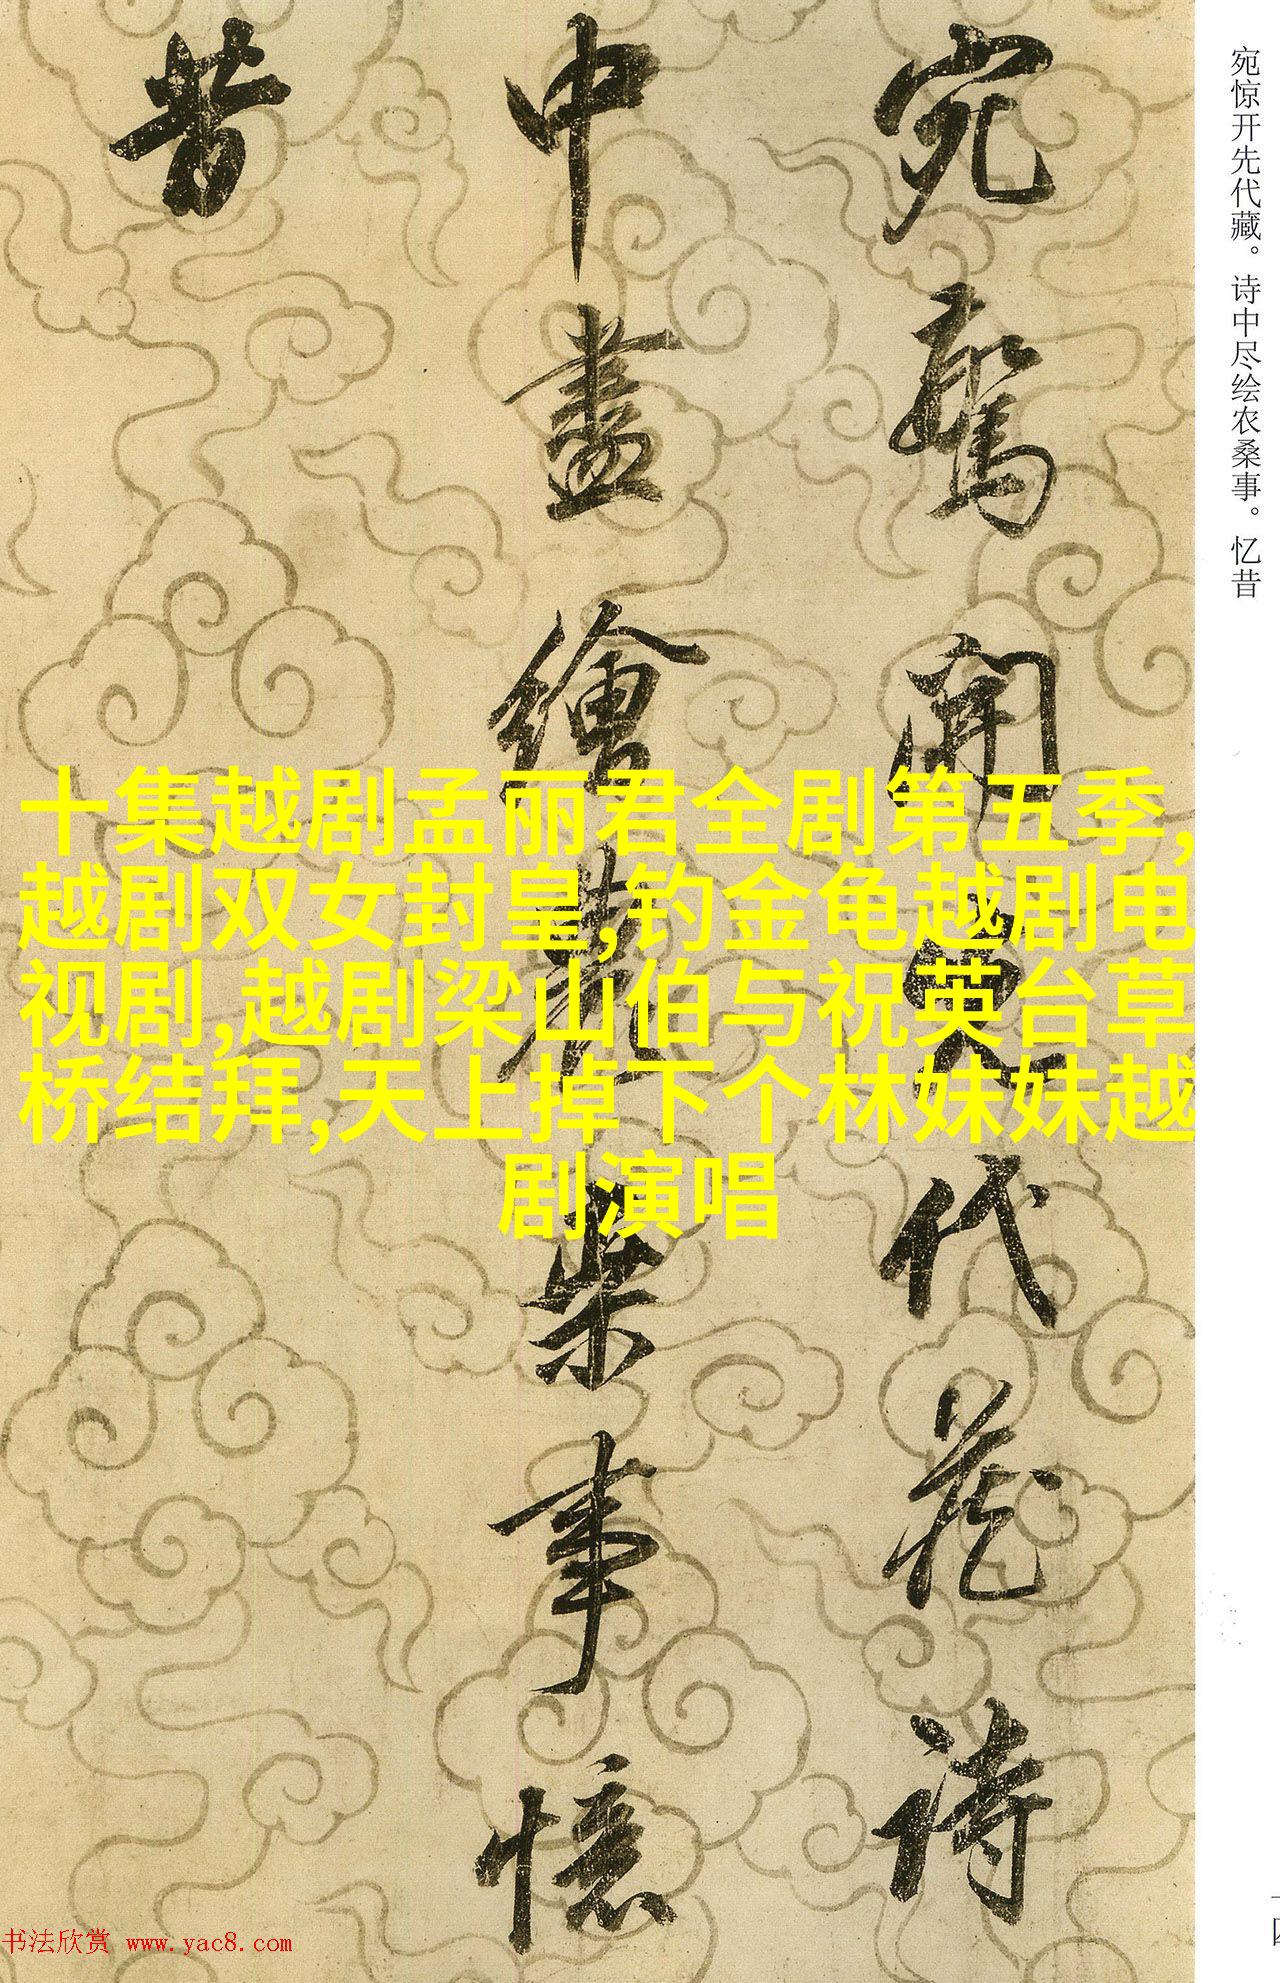 宛惊开先代藏。诗中尽绘农桑事。忆昔
宛驚開先代藏詩
中盡繪農桒事憶
昔
十集越剧孟丽君全剧第五季,
越剧双女封皇,钓金龟越剧电
视剧,越剧梁山伯与祝英台草
桥结拜,天上掉下个林妹妹越
剧演唱
书法欣赏 www.yac8.com